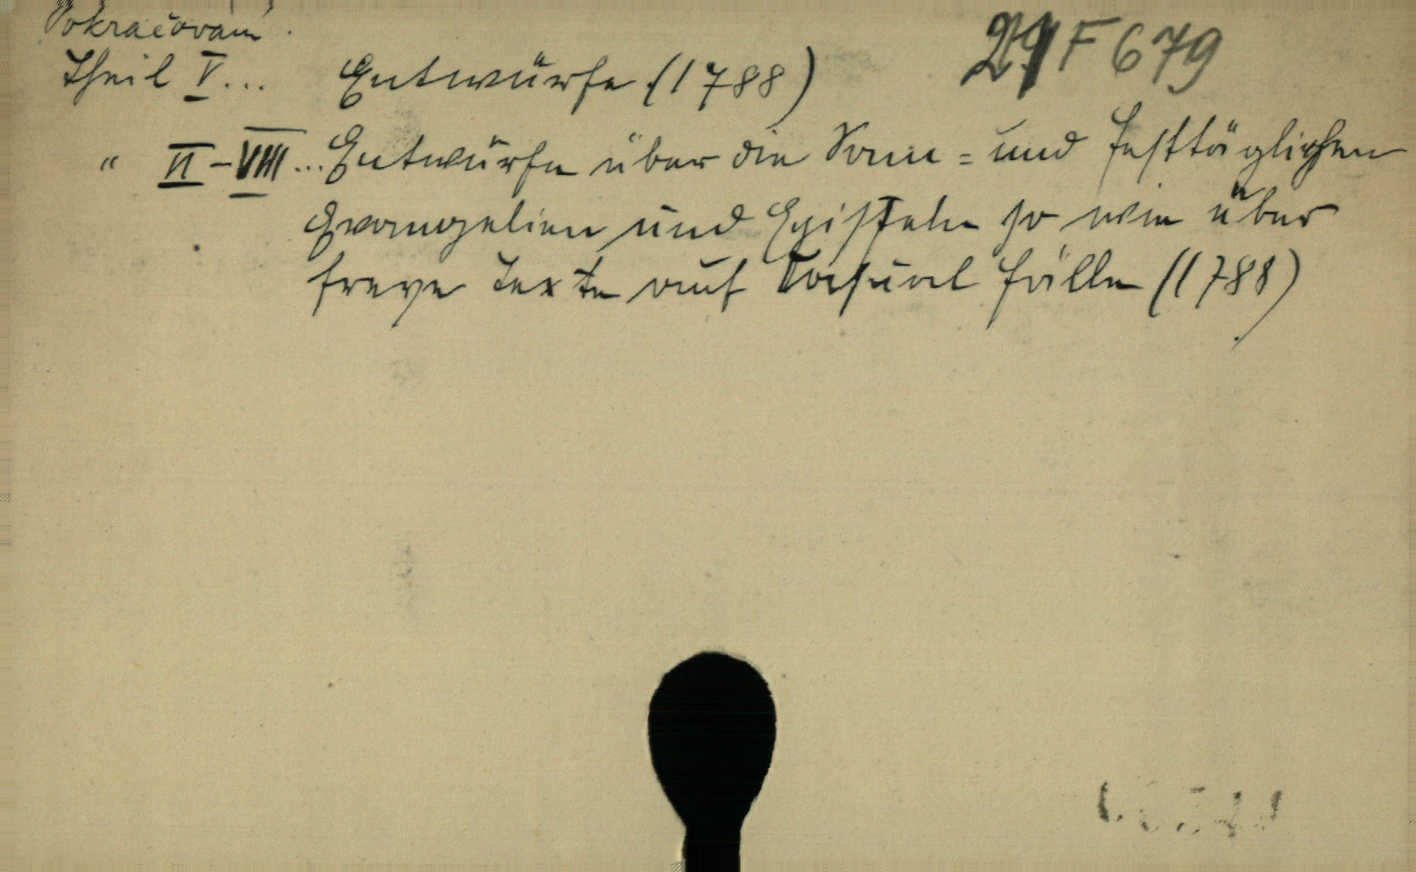 Pokračování.
29 F 679
Theil V... Entwürfe (1788)
" VI-VIII... Entwürfe über die Sonn= und festtäglichen
Evangelien und Episteln so wie über
freye Texte auf Casual fälle (1788)